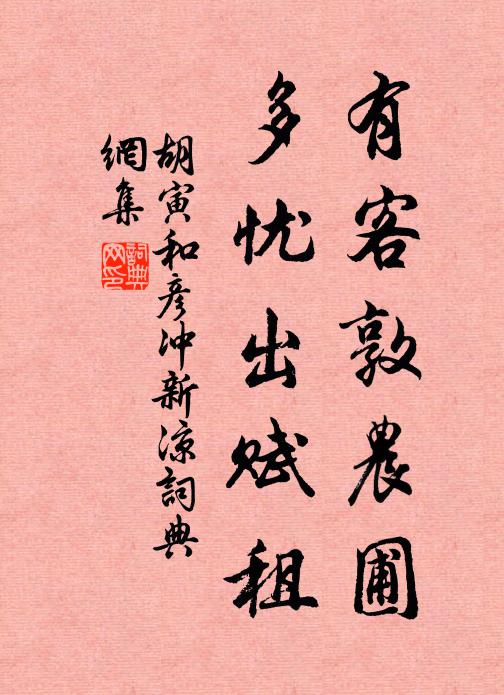 有客敦農圃
多忧出赋租
胡寅和彦冲新凉詞典
網集
詞典
网印